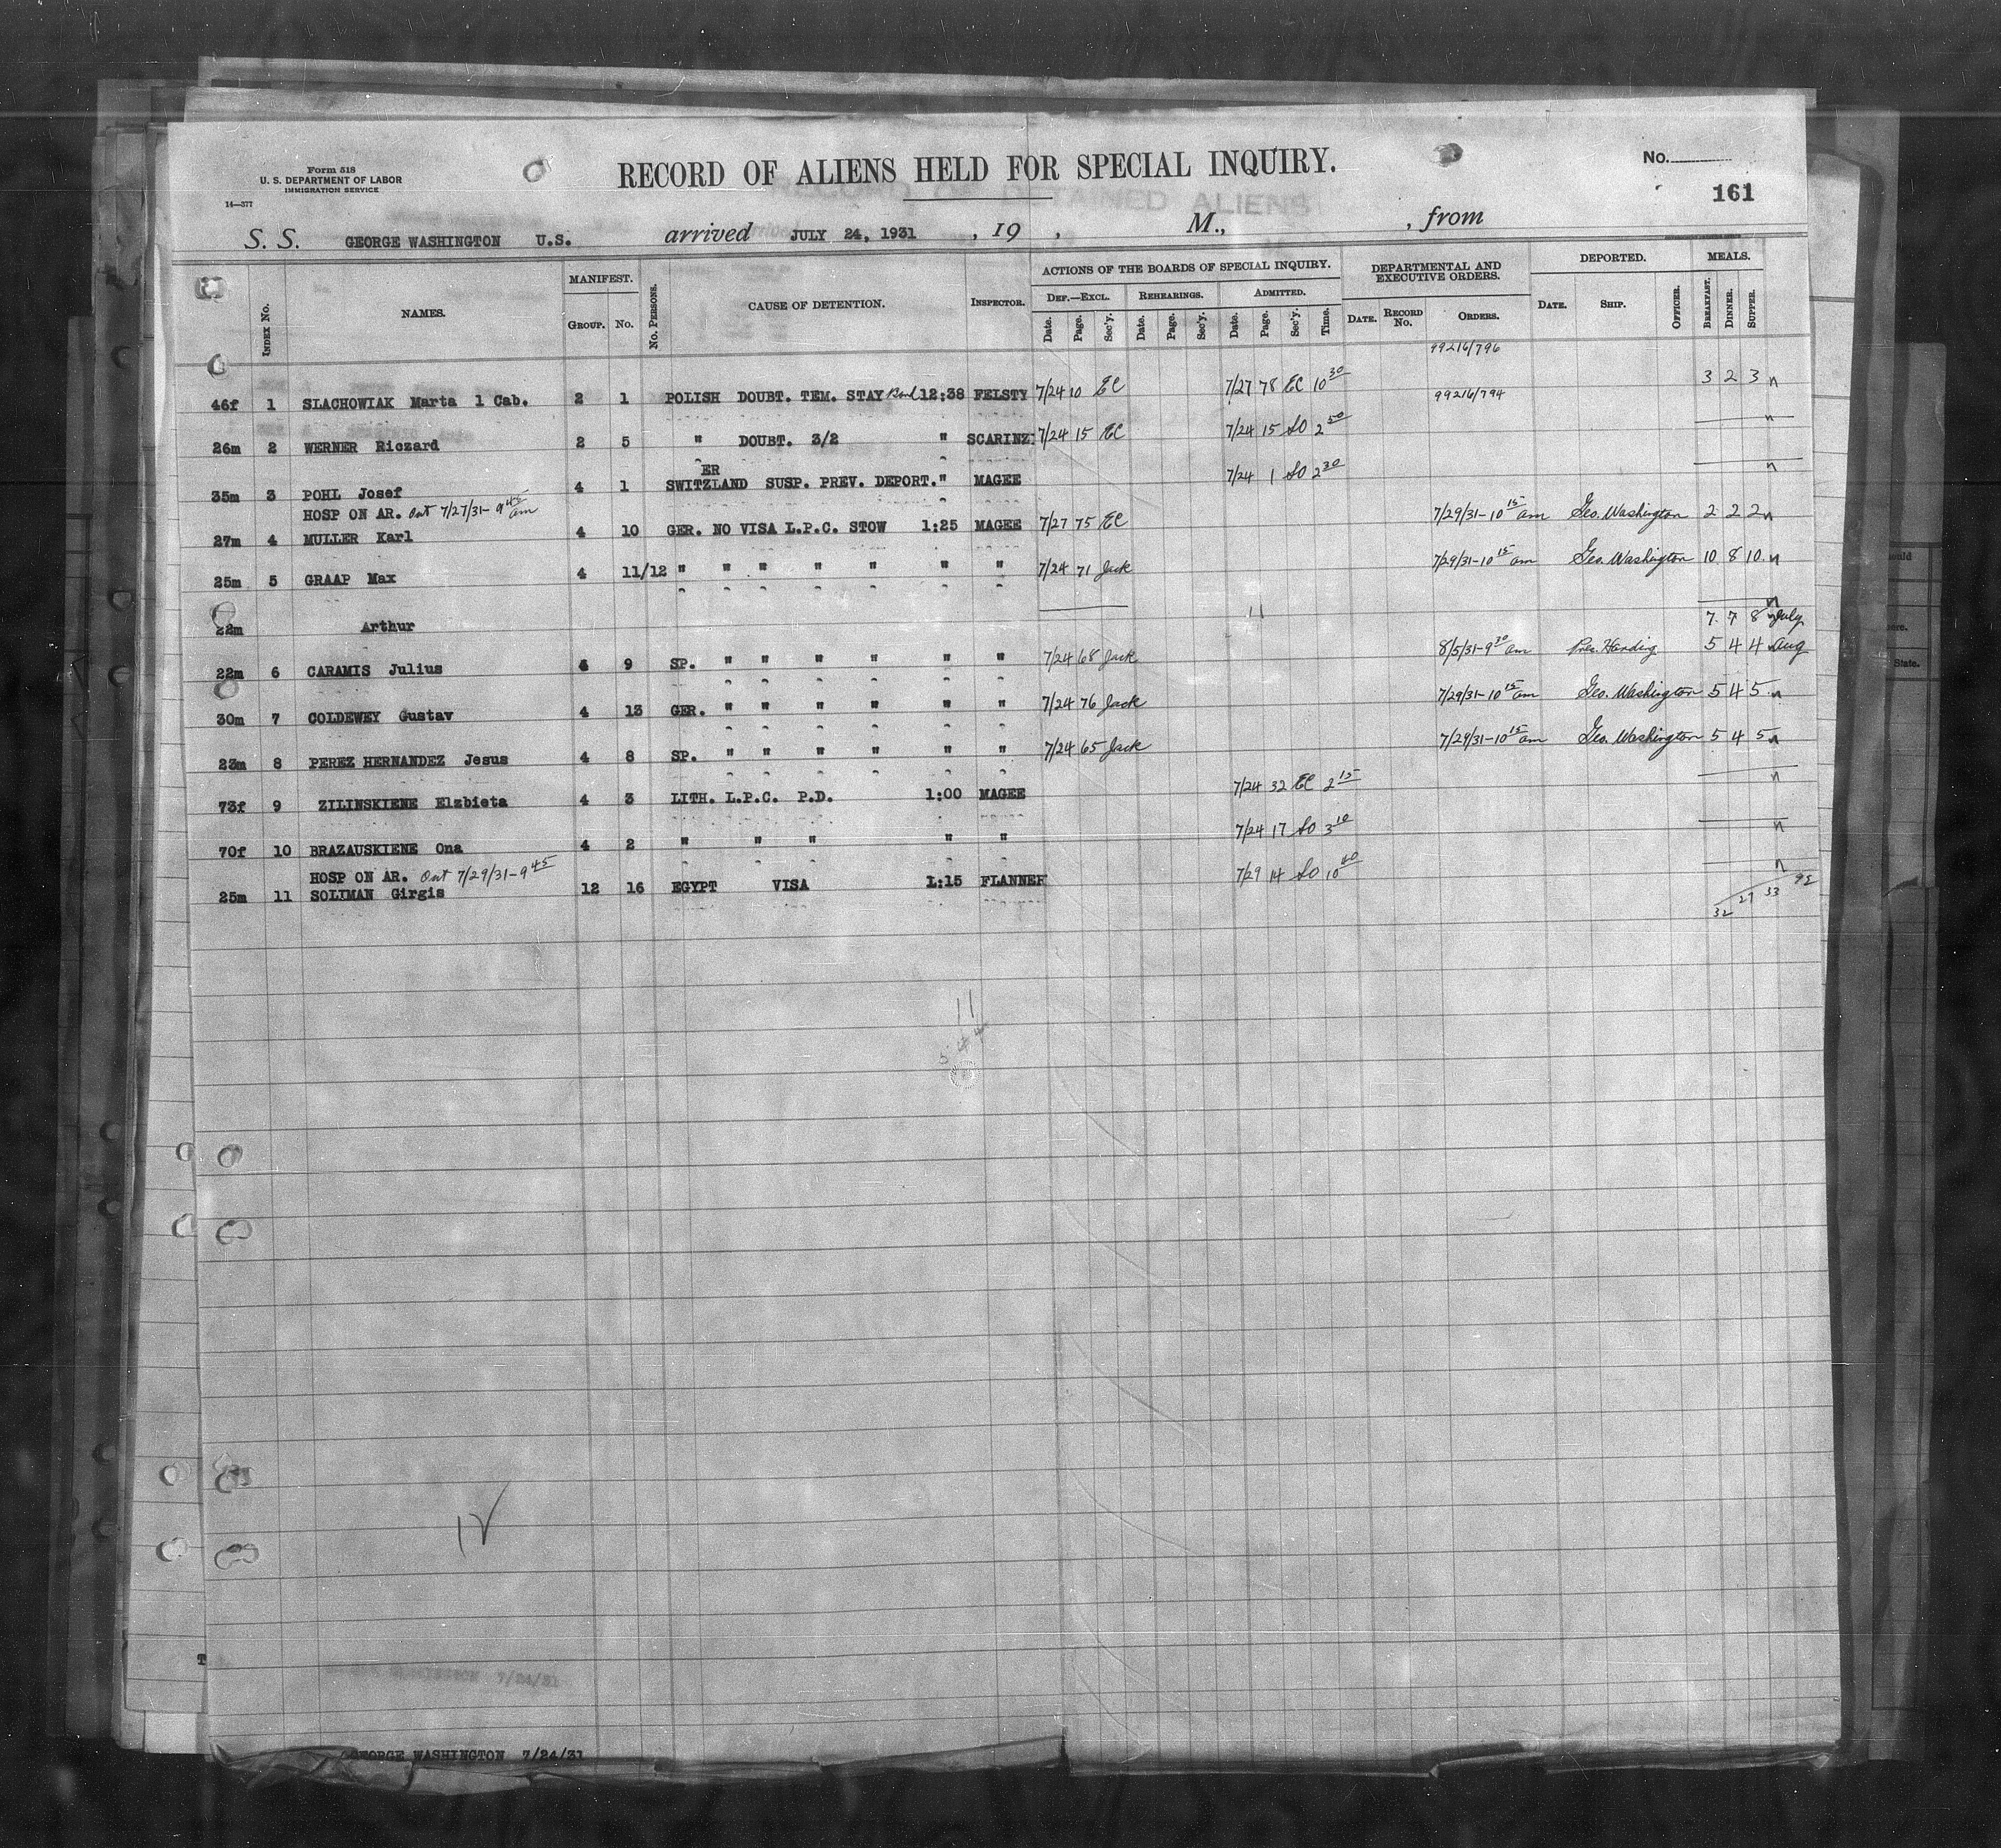 Form 518
U. S. DEPARTMENT OF LABOR
IMMIGRATION SERVICE
14—377
RECORD OF ALIENS HELD FOR SPECIAL INQUIRY.
No.
161
S. S. GEORGE WASHINGTON U.S. arrived JULY 24, 1931 , 19 , M., , from
INDEX No. NAMES. MANIFEST. GROUP. No. No. PERSONS. CAUSE OF DETENTION. INSPECTOR. ACTIONS OF THE BOARDS OF SPECIAL INQUIRY. DEPARTMENTAL AND EXECUTIVE ORDERS. DEPORTED. MEALS.
DEF.—EXCL. REHEARINGS. ADMITTED.
Date. Page. Sec'y. Date. Page. Sec'y. Date. Page. Sec'y. Time. DATE. RECORD No. ORDERS. DATE. SHIP. OFFICER. BREAKFAST. DINNER. SUPPER.
99216/796
46f 1 SLACHOWIAK Marta 1 Cab. 2 1 POLISH DOUBT. TEM. STAY 12:38 FELSTY 7/24 10 EC 7/27 78 EC 10 30 99216/794 3 2 3 n
26m 2 WERNER Riczard 2 5 " DOUBT. 3/2 " SCARINZI 7/24 15 EC 7/24 15 SO 2 50 n
ER
35m 3 POHL Josef 4 1 SWITZLAND SUSP. PREV. DEPORT." MAGEE 7/24 1 SO 2 30 n
HOSP ON AR. Out 7/27/31- 9 45 am
27m 4 MULLER Karl 4 10 GER. NO VISA L.P.C. STOW 1:25 MAGEE 7/27 75 EC 7/29/31-10 15 am Geo. Washington 2 2 2 n
25m 5 GRAAP Max 4 11/12 " " " " " " " 7/24 71 Jack 7/29/31-10 15 am Geo. Washington 10 8 10 n
22m Arthur 11 n
7 7 8 July
22m 6 CARAMIS Julius 4 9 SP. " " " " " " 7/24 68 Jack 8/5/31-9 30 am Pres. Harding 5 4 4 Aug
30m 7 COLDEWEY Gustav 4 13 GER. " " " " " " 7/24 76 Jack 7/29/31-10 15 am Geo. Washington 5 4 5 n
23m 8 PEREZ HERNANDEZ Jesus 4 8 SP. " " " " " " 7/24 65 Jack 7/29/31-10 15 am Geo. Washington 5 4 5 n
73f 9 ZILINSKIENE Elzbieta 4 3 LITH. L.P.C. P.D. 1:00 MAGEE 7/24 32 EC 2 15 n
70f 10 BRAZAUSKIENE Ona 4 2 " " " " " 7/24 17 SO 3 10 n
HOSP ON AR. Out 7/29/31-9 45
25m 11 SOLIMAN Girgis 12 16 EGYPT VISA 1:15 FLANNER 7/29 14 SO 10 40 n
32 27 33 92
11
5 4 4
12
GEORGE WASHINGTON 7/24/31